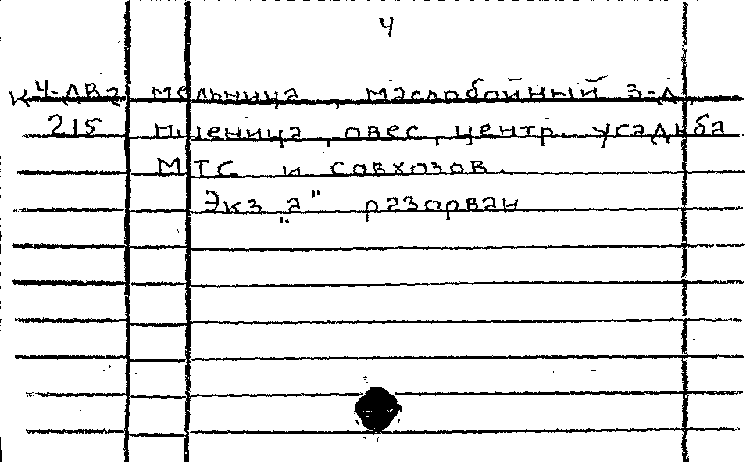 4
К4-ЛВа мельница, маслобойный з-д,
215 пшеница, овес, центр. усадьба
МТС и совхозов.
Экз „а" разорван